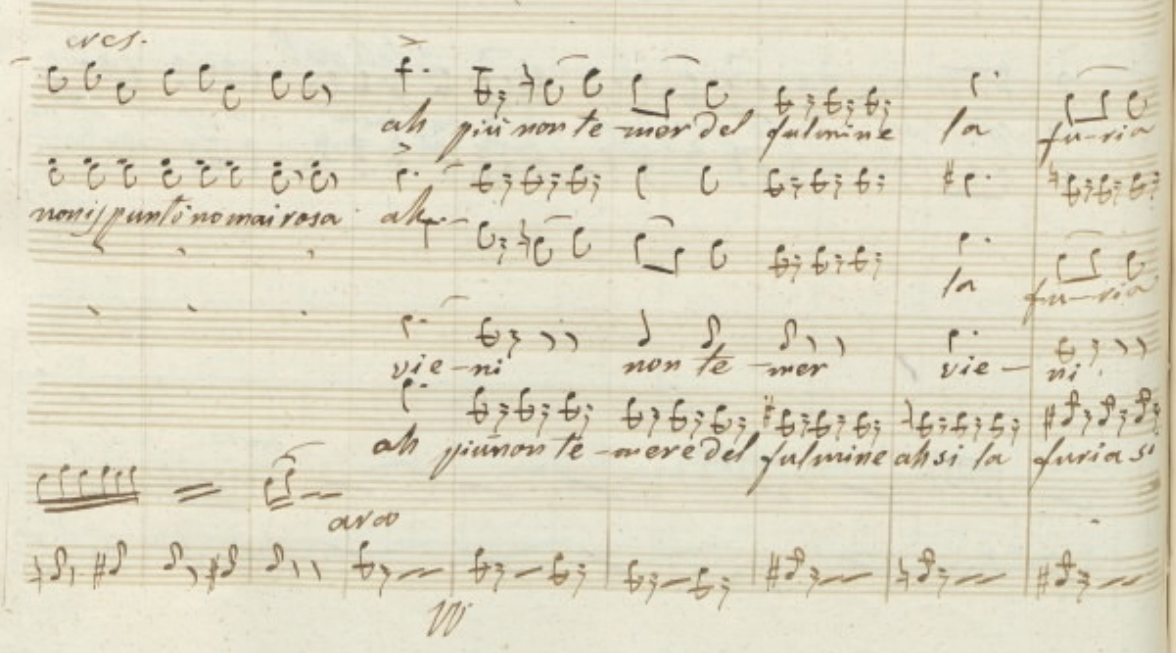 cres.
ah più non te-mer del fulmine la fu-ria
ah
la fu-ria
vie-ni non te-mer vie-ni
ah più non te-mere del fulmine ah si la furia si
arco